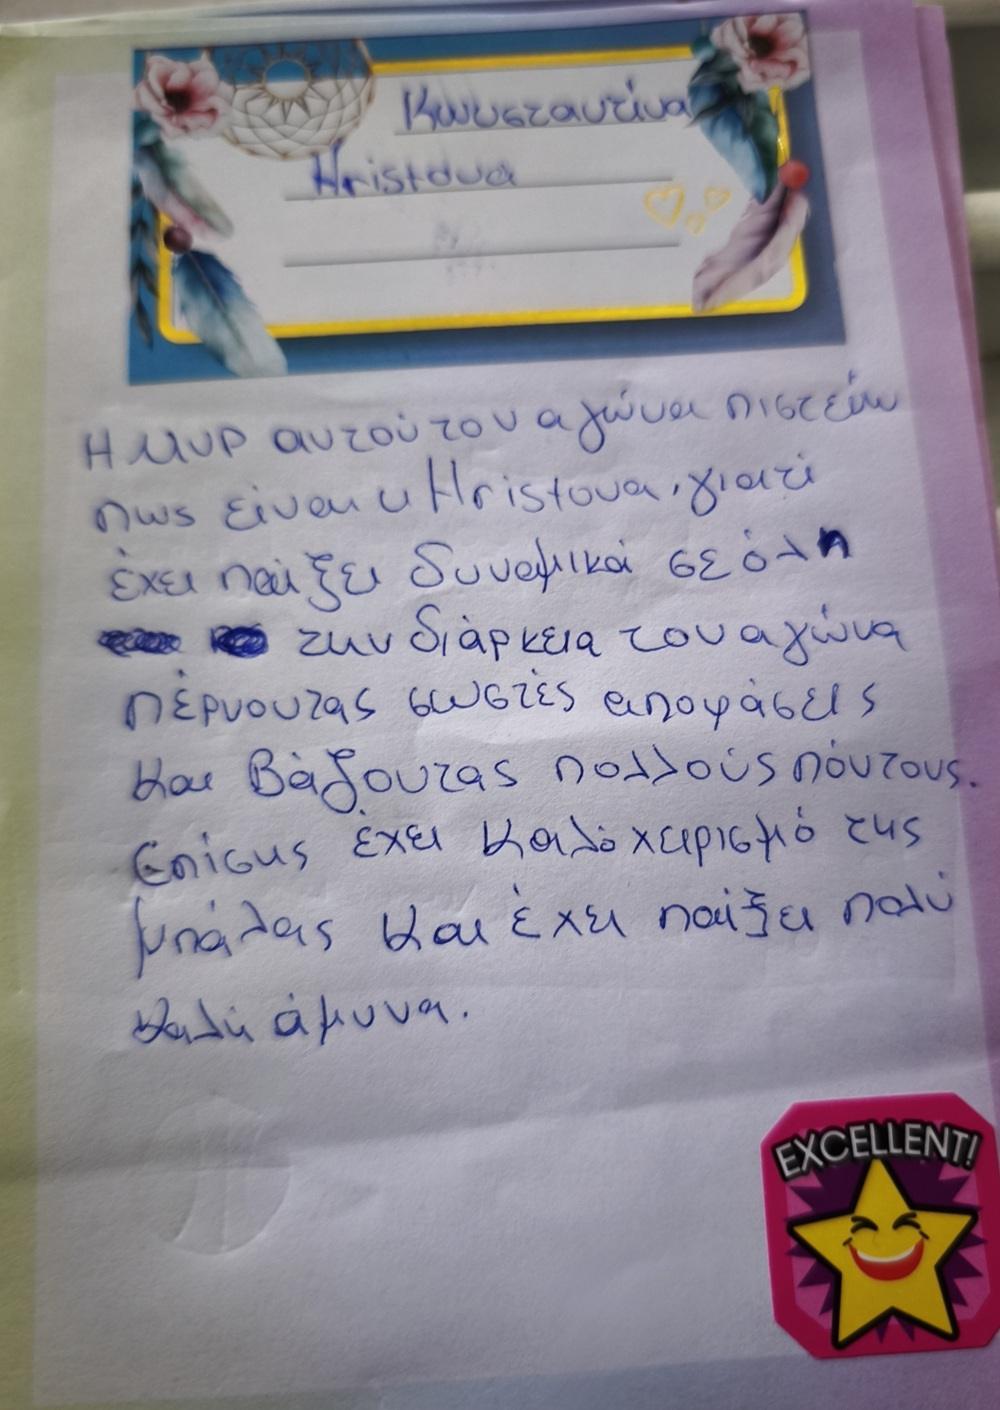 Κωνσταντίνα
Hristova
Η MVP αυτού του αγώνα πιστεύω
πως είναι η Hristova, γιατί
έχει παίξει δυναμικά σε όλη
την διάρκεια του αγώνα
πέρνοντας σωστές αποφάσεις
και βάζοντας πολλούς πόντους.
Επίσης έχει καλό χειρισμό της
μπάλας και έχει παίξει πολύ
καλή άμυνα.
EXCELLENT!